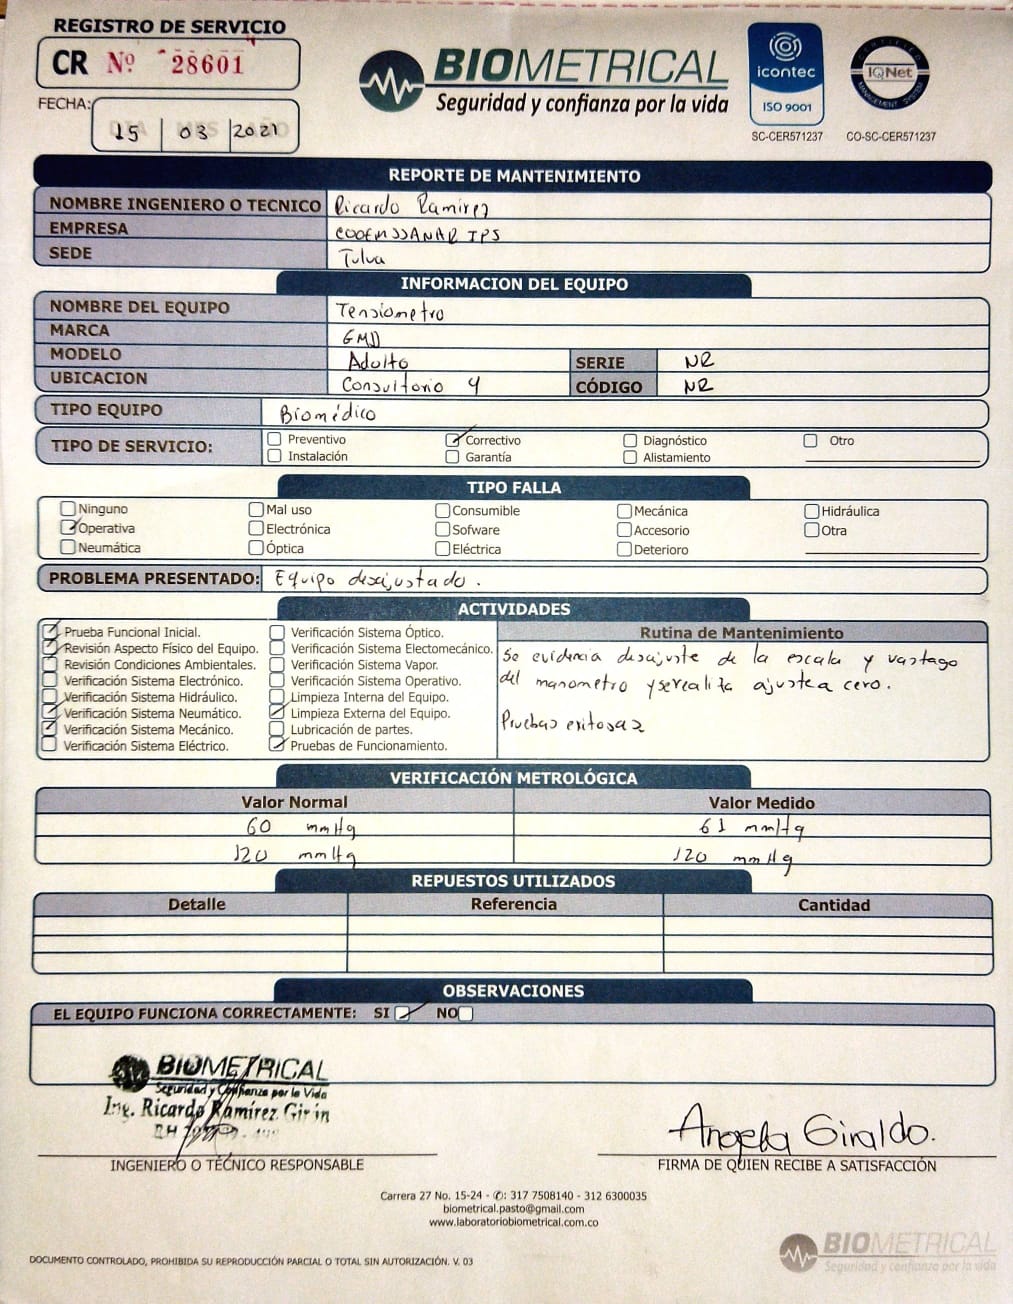 REGISTRO DE SERVICIO
CR Nº 28601
FECHA:
DIA MES AÑO
15 03 2021
BIOMETRICAL
Seguridad y confianza por la vida
icontec
ISO 9001
SC-CER571237
CERTIFIED
IQNet
MANAGEMENT SYSTEM
CO-SC-CER571237
REPORTE DE MANTENIMIENTO
NOMBRE INGENIERO O TECNICO Ricardo Ramirez
EMPRESA COOEMSSANAR IPS
SEDE Tulua
INFORMACION DEL EQUIPO
NOMBRE DEL EQUIPO Tensiometro
MARCA GMD
MODELO Adulto SERIE NR
UBICACION Consultorio 4 CÓDIGO NR
TIPO EQUIPO Biomédico
TIPO DE SERVICIO: Preventivo Correctivo Diagnóstico Otro
Instalación Garantía Alistamiento
TIPO FALLA
Ninguno Mal uso Consumible Mecánica Hidráulica
Operativa Electrónica Sofware Accesorio Otra
Neumática Óptica Eléctrica Deterioro
PROBLEMA PRESENTADO: Equipo desajustado.
ACTIVIDADES
Prueba Funcional Inicial.
Revisión Aspecto Físico del Equipo.
Revisión Condiciones Ambientales.
Verificación Sistema Electrónico.
Verificación Sistema Hidráulico.
Verificación Sistema Neumático.
Verificación Sistema Mecánico.
Verificación Sistema Eléctrico.
Verificación Sistema Óptico.
Verificación Sistema Electomecánico.
Verificación Sistema Vapor.
Verificación Sistema Operativo.
Limpieza Interna del Equipo.
Limpieza Externa del Equipo.
Lubricación de partes.
Pruebas de Funcionamiento.
Rutina de Mantenimiento
Se evidencia desajuste de la escala y vastago
del manometro y se realiza ajuste a cero.
Pruebas exitosas
VERIFICACIÓN METROLÓGICA
Valor Normal Valor Medido
60 mmHg 61 mmHg
120 mmHg 120 mmHg
REPUESTOS UTILIZADOS
Detalle Referencia Cantidad
OBSERVACIONES
EL EQUIPO FUNCIONA CORRECTAMENTE: SI NO
BIOMETRICAL
Seguridad y Confianza por la Vida
Ing. Ricardo Ramírez Girón
INGENIERO O TÉCNICO RESPONSABLE
Angela Giraldo.
FIRMA DE QUIEN RECIBE A SATISFACCIÓN
Carrera 27 No. 15-24 - ✆: 317 7508140 - 312 6300035
biometrical.pasto@gmail.com
www.laboratoriobiometrical.com.co
DOCUMENTO CONTROLADO, PROHIBIDA SU REPRODUCCIÓN PARCIAL O TOTAL SIN AUTORIZACIÓN. V. 03
BIOMETRICAL
Seguridad y confianza por la vida